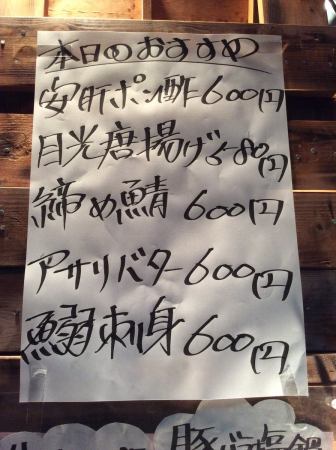 本日のおすすめ
安肝ポン酢600円
目光唐揚げ580円
締め鯖 600円
アサリバター600円
鰯刺身600円